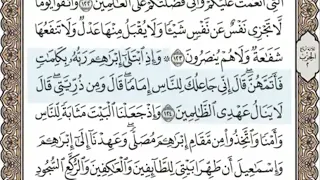 ٱلَّتِىٓ أَنۡعَمۡتُ عَلَيۡكُمۡ وَأَنِّى فَضَّلۡتُكُمۡ عَلَى ٱلۡعَٰلَمِينَ ١٢٢ وَٱتَّقُواْ يَوۡمٗا
لَّا تَجۡزِى نَفۡسٌ عَن نَّفۡسٖ شَيۡـٔٗا وَلَا يُقۡبَلُ مِنۡهَا عَدۡلٞ وَلَا تَنفَعُهَا
شَفَٰعَةٞ وَلَا هُمۡ يُنصَرُونَ ١٢٣ ۞ وَإِذِ ٱبۡتَلَىٰٓ إِبۡرَٰهِـۧمَ رَبُّهُۥ بِكَلِمَٰتٖ
فَأَتَمَّهُنَّۖ قَالَ إِنِّى جَاعِلُكَ لِلنَّاسِ إِمَامٗاۖ قَالَ وَمِن ذُرِّيَّتِىۖ قَالَ
لَا يَنَالُ عَهۡدِى ٱلظَّٰلِمِينَ ١٢٤ وَإِذۡ جَعَلۡنَا ٱلۡبَيۡتَ مَثَابَةٗ لِّلنَّاسِ
وَأَمۡنٗا وَٱتَّخِذُواْ مِن مَّقَامِ إِبۡرَٰهِـۧمَ مُصَلّٗىۖ وَعَهِدۡنَآ إِلَىٰٓ إِبۡرَٰهِـۧمَ
وَإِسۡمَٰعِيلَ أَن طَهِّرَا بَيۡتِىَ لِلطَّآئِفِينَ وَٱلۡعَٰكِفِينَ وَٱلرُّكَّعِ ٱلسُّجُودِ
الحزب